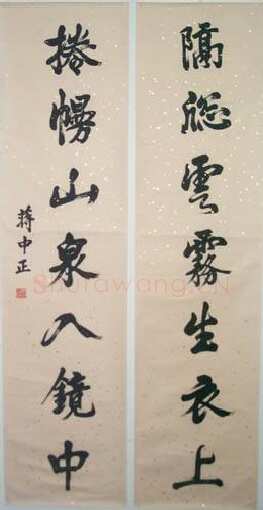 隔牎雲霧生衣上
捲幔山泉入鏡中
蔣中正